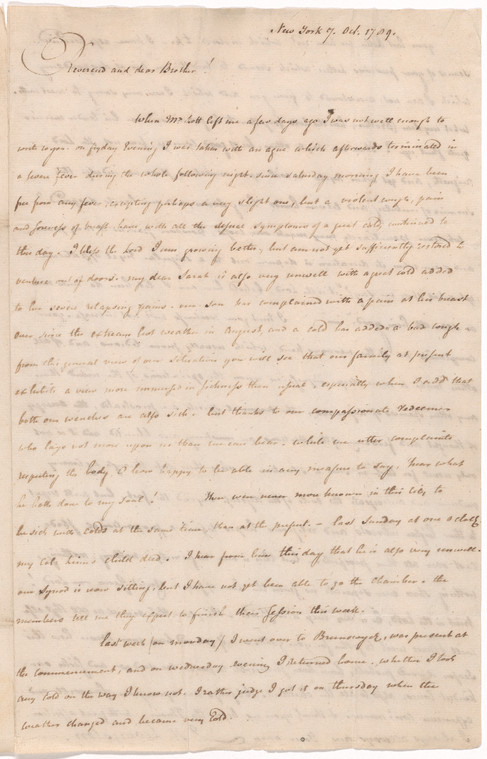 New York 7. Oct. 1789.
Reverend and dear Brother!
When Mr left me a few days ago I was not well enough to
write to you. on fryday Evening I was taken with an ague which afterwards terminated in
a severe fever during the whole following night. since saturday morning I have been
free from any fever excepting perhaps a very slight one, but a violent cough, pain
and soreness of breast have, with all the usual symptoms of a great cold, continued to
this day. I bless the Lord I am growing better, but am not yet sufficiently restored to
venture out of doors. my dear Sarah is also very unwell with a great cold added
to her severe pains. our son has complained with a pain at his breast
ever since the extream hot weather in August, and a cold has added a bad cough.
from this general view of our situation you will see that our family at present
exhibits a view more immersed in sickness than usual. especially when I add that
both our are also sick. but thanks to our compassionate Redeemer
who lays not more upon us than we can bear. while we utter complaints
respecting the body I bear happy to be able in any measure to say. hear what
he hath done to my soul. There were never more known in this city to
be sick with colds at the same time than at the present. last Sunday at one o'clock
my child died. I hear from him this day that he is also very unwell.
our Synod is now sitting, but I have not yet been able to go the Chamber. the
members tell me they expect to finish their session this week.
last week (on monday) I went over to Brunswyck, was present at
the commencement, and on wednesday evening I returned home. whether I took
any cold on the way I know not. I rather judge I got it on thursday when the
weather changed and became very cold.